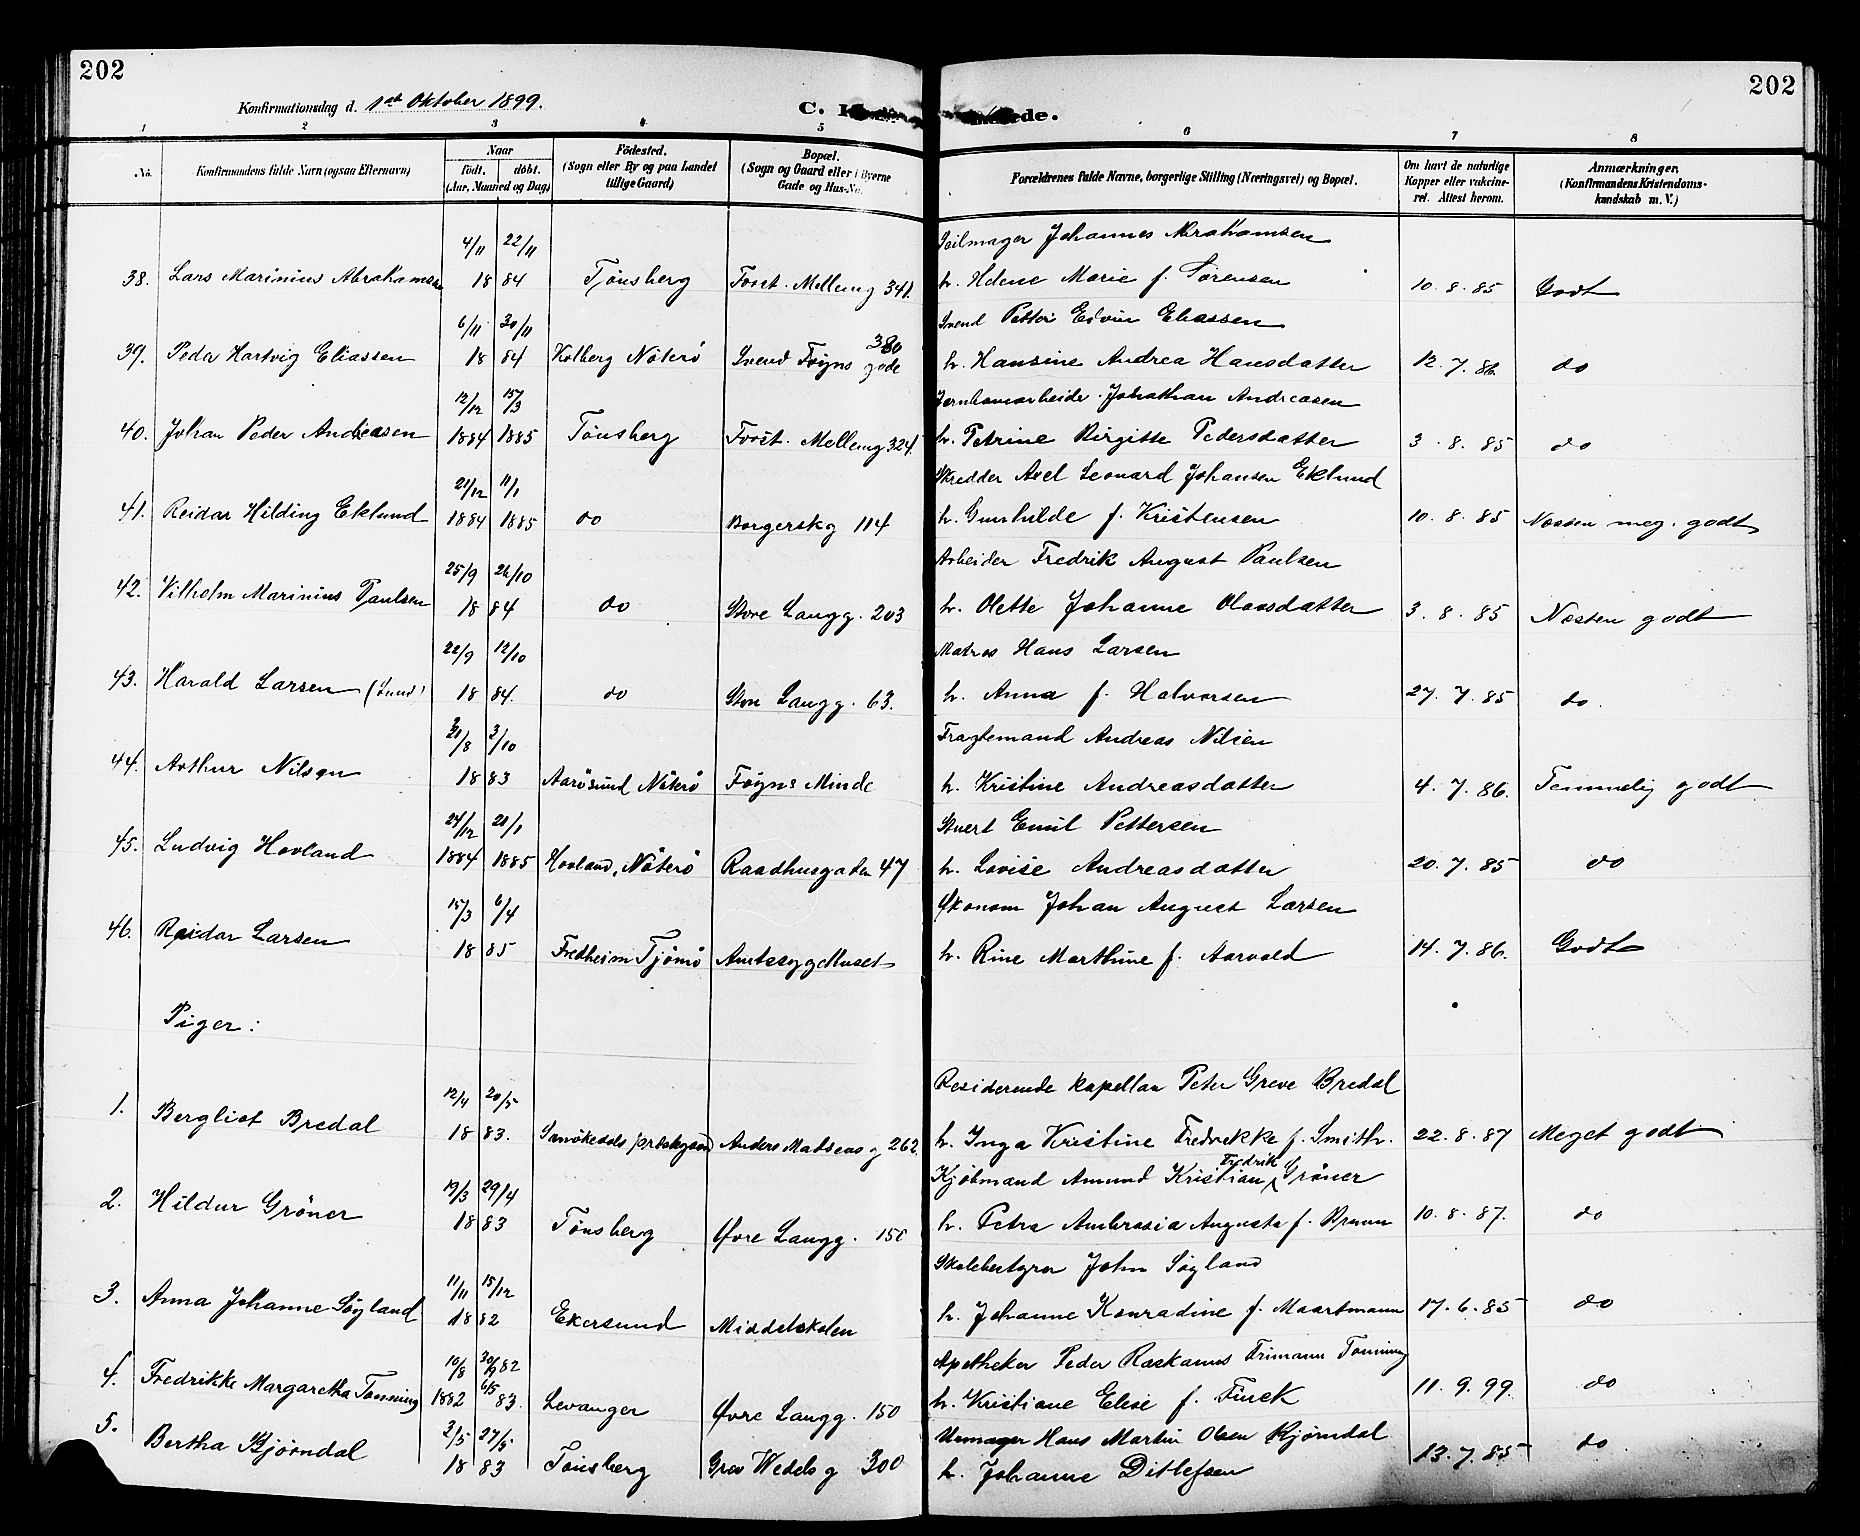 202
202
Konfirmationsdag d. 1ste Oktober 1899.
C. K
de.
1 2 3 4 5 6 7 8
No.
Konfirmandens fulde Navn (ogsaa Efternavn)
Naar
født. døbt.
(Aar, Maaned og Dag)
Fødested.
(Sogn eller By og paa Landet
tillige Gaard)
Bopæl.
(Sogn og Gaard eller i Byerne
Gade og Hus-No.
Forældrenes fulde Navne, borgerlige Stilling (Næringsvei) og Bopæl.
Om havt de naturlige
Kopper eller vakcine-
ret. Attest herom.
Anmærkninger.
(Konfirmandens Kristendoms-
kundskab m. V.)
4/11 22/11 Seilmager Johannes Abrahamsen
38. Lars Marinius Abrahamsen 18 84 Tønsberg Forst. Mellemg 341. h. Helene Marie f. Sørensen 10.8.85 Godt
6/11 30/11 380 Svend Petter Edvin Eliassen
39. Peder Hartvig Eliassen 18 84 Kolberg Nøterø Svend Foyns gade h. Hansine Andrea Hansdatter 12.7.86. do
12/12 15/3 Jernbanearbeider Johathan Andreasen
40. Johan Peder Andreasen 1884 1885 Tønsberg Forst. Mellemg 324. h. Petrine Birgitte Pedersdatter 3.8.85 do
21/12 11/1 Skredder Axel Leonard Johansen Eklund
41. Reidar Hilding Eklund 1884 1885 do Borgerskg 114 h. Gunhilde f. Kristensen 10.8.85 Næsten meg. godt
25/9 26/10 Arbeider Fredrik August Paulsen
42. Vilhelm Marinius Paulsen 18 84 do Store Langg. 203 h. Olette Johanne Olausdatter 3.8.85 Næsten godt
22/9 12/10 Matros Hans Larsen
43. Harald Larsen (Lund) 18 84. do Store Langg. 63. h. Anna f. Halvorsen 27.7.85 do.
/8 2/10 Fragtemand Andreas Nilsen
44. Arthur Nilsen 18 83 Aarøsund Nøterø Føyns Minde h. Kristine Andreasdatter 4.7.86. Temmelig godt
24/12 21/1 Stuert Emil Pettersen
45. Ludvig Hovland 1884 1885 Hovland, Nøterø Raadhusgaden 47 h. Lovise Andreasdatter 20.7.85 do
15/3 6/4 Økonom Johan August Larsen
46. Reidar Larsen 18 85 Fredheim Tjømø Amtssygehuset h. Rine Marthine f. Aarvold 14.7.86. Godt
Piger:
12/4 20/5 Residerende kapellan Peter Greve Bredal
1. Bergliot Bredal 18 83. Anders Madsens g 262. h. Inga Kristine Fredrekke f. Smith. 22.8.87 Meget godt
19/3 29/4 Kjøbmand Amund Kristian Fredrik Grøner
2. Hildur Grøner 18 83 Tønsberg Øvre Langg. 150 h. Petra Ambrosia Augusta f. Bruun 10.8.87. do
11/11 15/12 Skolebestyrer John Søyland
3. Anna Johanne Søyland 18 82 Ekersund Middelskolen h. Johanne Konradine f. Maartmann 17.6.85 do
10/8 30/9 82 Apotheker Peder Raskanus Frimann Tonning
4. Fredrikke Margaretha Tonning 1882 6/5 83. Levanger Øvre Langg. 150 h. Kristiane Elise f. Finck 11.9.99. do
2/5 27/5 Urmager Hans Martin Olsen Bjørndal
5. Bertha Bjørndal 18 83 Tønsberg Grev Wedels g 300 h. Johanne Ditlefsen 13.7.85 do.